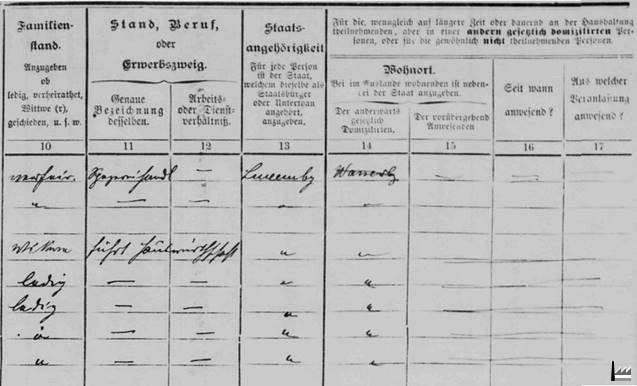 Familien-
stand.
Anzugeben
ob
ledig, verheirathet,
Wittwe (r),
geschieden, u. s. w.
Stand, Beruf,
oder
Erwerbszweig.
Genaue
Bezeichnung
desselben.
Arbeits-
oder Dienst-
verhältniß.
Staats-
angehörigkeit
Für jede Person
ist der Staat,
welchem dieselbe als
Staatsbürger
oder Unterthan
angehört,
anzugeben.
Für die, wenngleich auf längere Zeit oder dauernd an der Haushaltung
theilnehmenden, aber in einer andern gesetzlich domizilirten Per-
sonen, oder für die gewöhnlich nicht theilnehmenden Personen.
Wohnort.
Bei im Auslande wohnenden ist neben-
bei der Staat anzugeben.
Der anderwärts
gesetzlich
Domizilirten.
Der vorübergehend
Anwesenden
Seit wann
anwesend?
Aus welcher
Veranlassung
anwesend?
10 11 12 13 14 15 16 17
verheir. — — —
" — — " "
Wittwe führt Hauswirthschaft " "
ledig — — " "
ledig — — " "
" — — " "
" — — " "